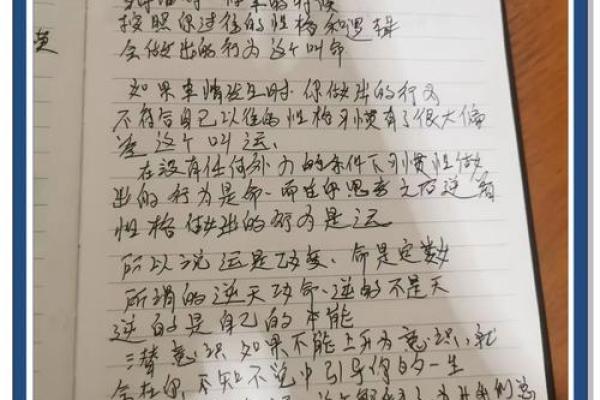 的时候
按照你过往的性格和逻辑
会做出的行为 这个叫命
如果事情发生时 你做出的行为
不符合自己以往的性格习惯有了很大偏
差 这个叫运.
在没有任何外力的条件下习惯性做
出的行为是命.而在你思考之后逆着
性格做出的行为是运
所以说 运是改变、命是定数
所谓的逆天改命、逆的不是天
逆的是自己的本能
潜意识 如果不能上升为意识,就
会在你 不知不觉中引导你的一生